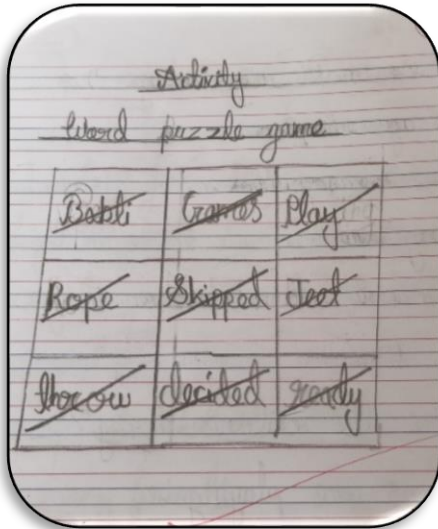 Activity
Word puzzle game
Babli Games Play
Rope Skipped Jeet
throw decided ready